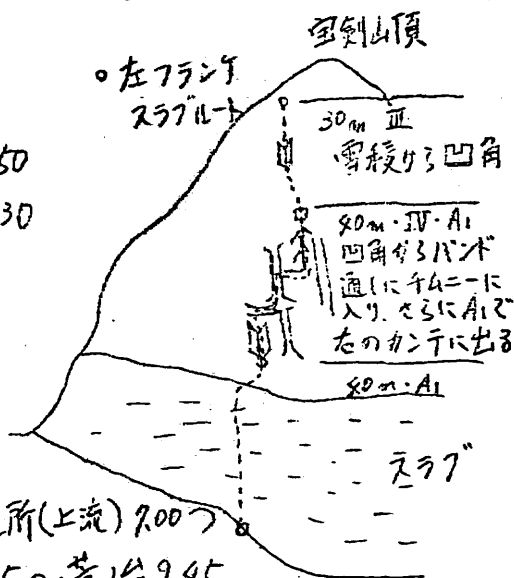 宝剣山頂
○左フランケ
スラブルート
50
30
30m Ⅲ
雪稜から凹角
40m・Ⅳ・A1
凹角からバンド
通しにチムニーに
入り、さらにA1で
左のカンテに出る
40m・A1
スラブ
所(上流)7.00つ
9.45